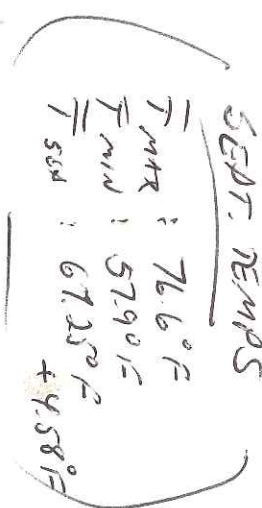 SEPT. TEMPS
T̅ MAX : 76.6°F
T̅ MIN : 57.9°F
T̿ SEP : 67.25°F +4.58°F